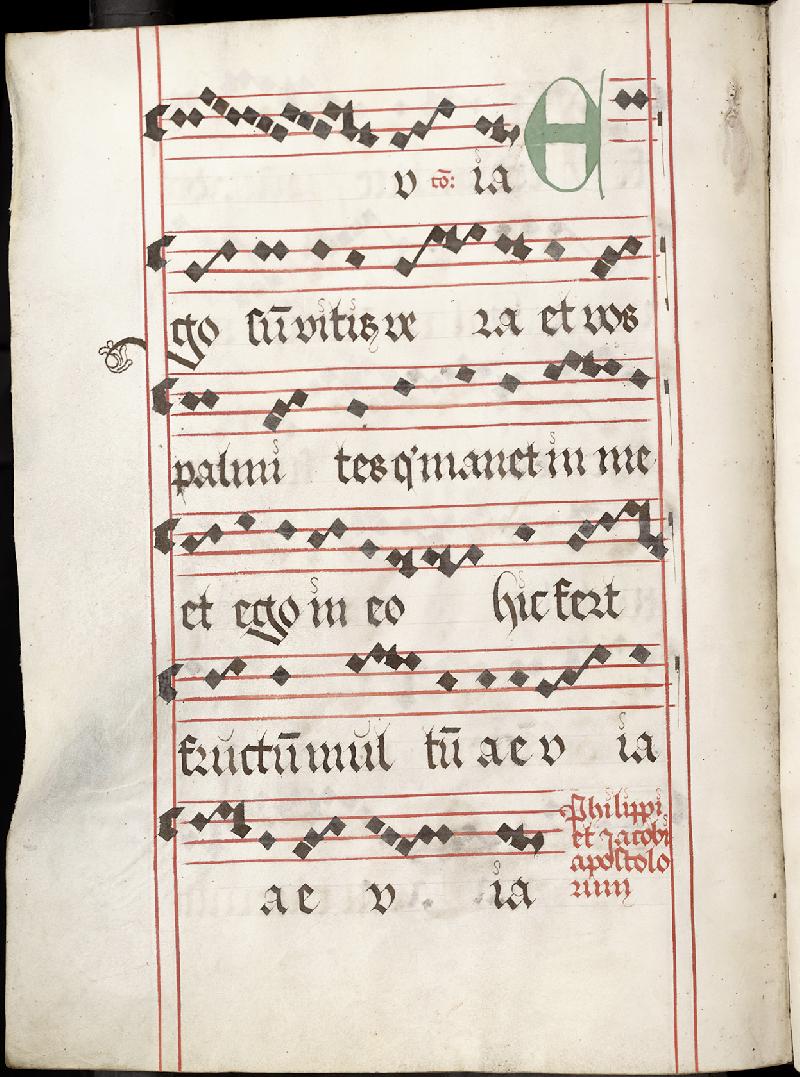 v cō: ia E
go sū vitis ve ra et vos
palmi tes q' manet in me
et ego in eo hic fert
fructū mul tū a e v ia
a e v ia
Philippi
et Jacobi
apostolo
rum